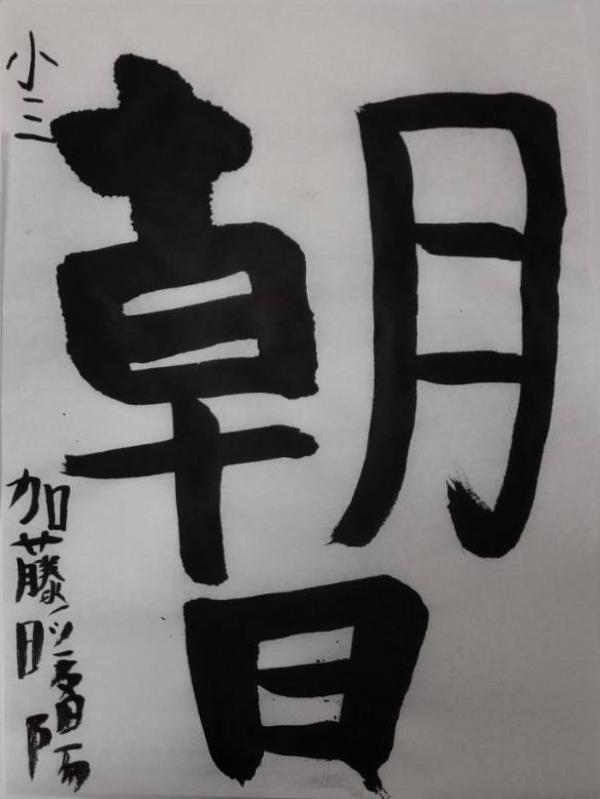 朝日
小三
加藤暖陽